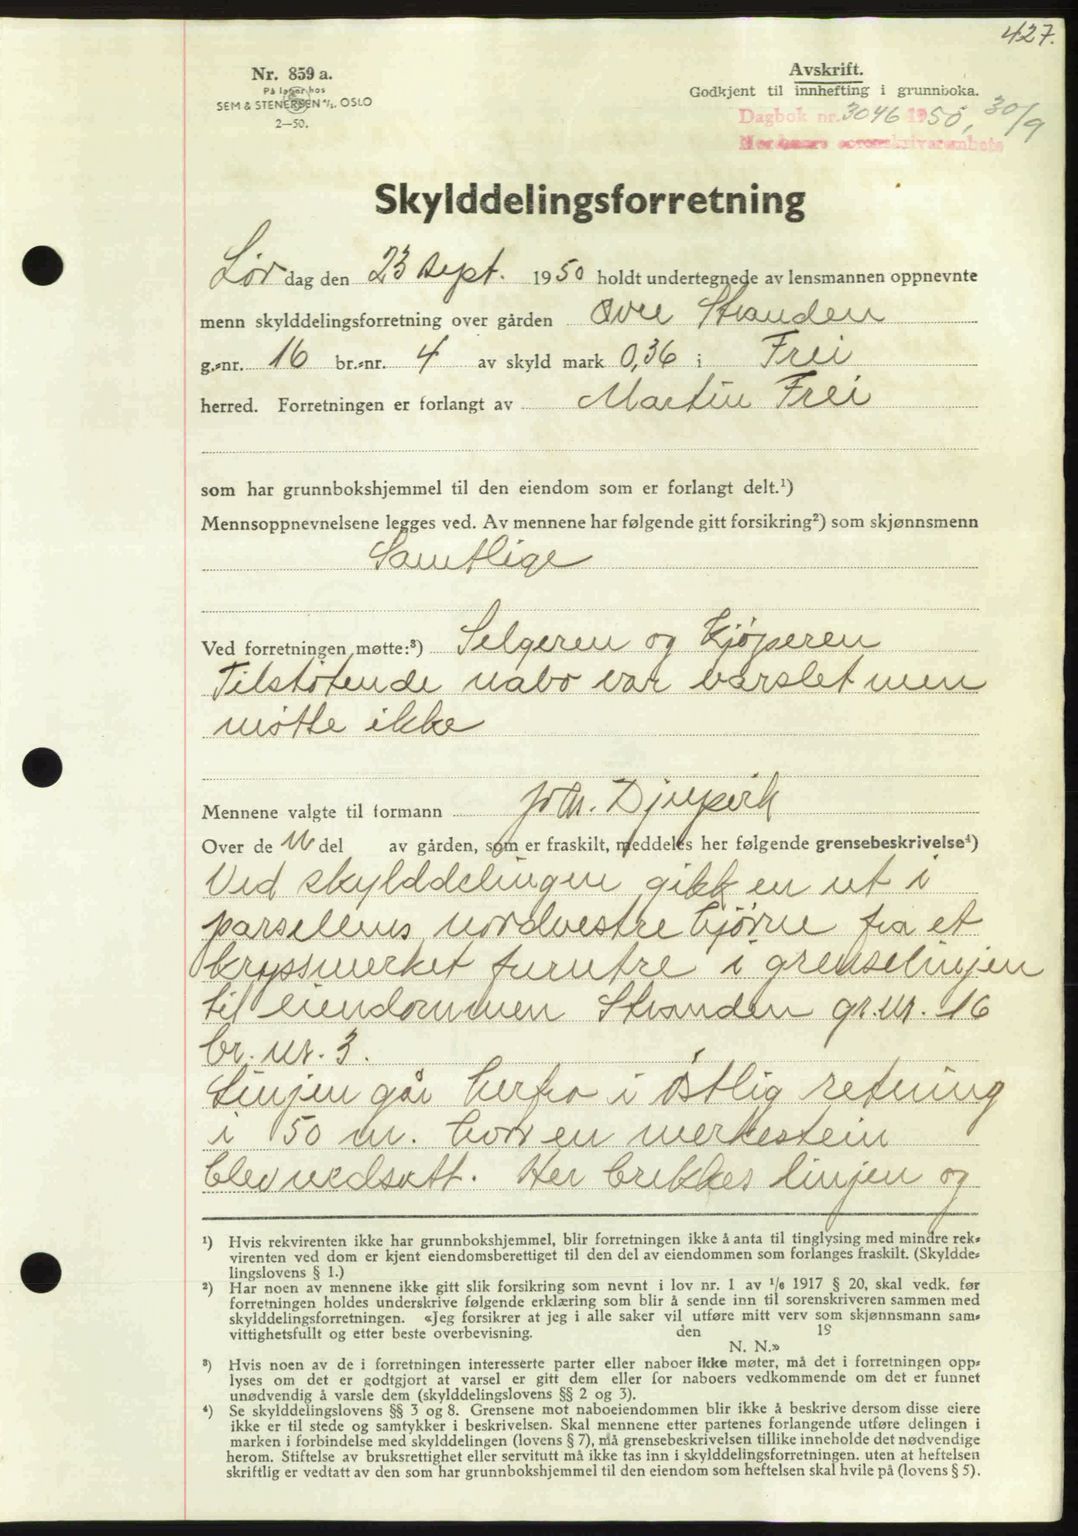 427.
Nr. 859 a.
På lager hos
SEM & STENERSEN A/S, OSLO
2—50.
Avskrift.
Godkjent til innhefting i grunnboka.
Dagbok nr. 3046 1950, 30/9
Nordmøre sorenskrivarembete
Skylddelingsforretning
Lør dag den 23 sept. 1950 holdt undertegnede av lensmannen oppnevnte
menn skylddelingsforretning over gården Øvre Stranden
g.-nr. 16 br.-nr. 4 av skyld mark 0,36 i Frei
herred. Forretningen er forlangt av Martin Frei
som har grunnbokshjemmel til den eiendom som er forlangt delt.¹)
Mennsoppnevnelsene legges ved. Av mennene har følgende gitt forsikring²) som skjønnsmenn
Samtlige
Ved forretningen møtte:³) Selgeren og Kjøperen
Tilstøtende nabo var varslet men
møtte ikke
Mennene valgte til formann Joh. Djupvik
Over de n del av gården, som er fraskilt, meddeles her følgende grensebeskrivelse⁴)
Ved skylddelingen gikk en ut i
parsellens nordvestre hjørne fra et
kryssmerket furutre i grenselinjen
til eiendommen Stranden gr.nr. 16
br. nr. 3.
Linjen går herfra i østlig retning
i 50 m. hvor en merkestein
blev nedsatt. Her brekkes linjen og
¹) Hvis rekvirenten ikke har grunnbokshjemmel, blir forretningen ikke å anta til tinglysing med mindre rek-
virenten ved dom er kjent eiendomsberettiget til den del av eiendommen som forlanges fraskilt. (Skyldde-
lingslovens § 1.)
²) Har noen av mennene ikke gitt slik forsikring som nevnt i lov nr. 1 av ¹/₆ 1917 § 20, skal vedk. før
forretningen holdes underskrive følgende erklæring som blir å sende inn til sorenskriveren sammen med
skylddelingsforretningen. «Jeg forsikrer at jeg i alle saker vil utføre mitt verv som skjønnsmann sam-
vittighetsfullt og etter beste overbevisning. den 19
N. N.»
³) Hvis noen av de i forretningen interesserte parter eller naboer ikke møter, må det i forretningen opp-
lyses om det er godtgjort at varsel er gitt dem eller for naboers vedkommende om det er funnet
unødvendig å varsle dem (skylddelingslovens §§ 2 og 3).
⁴) Se skylddelingslovens §§ 3 og 8. Grensene mot naboeiendommen blir ikke å beskrive dersom disse eiere
ikke er til stede og samtykker i beskrivelsen. Skal mennene etter partenes forlangende utføre delingen i
marken i forbindelse med skylddelingen (lovens § 7), må grensebeskrivelsen tillike inneholde det nødvendige
herom. Stiftelse av bruksrettighet eller servitutt må ikke tas inn i skylddelingsforretningen. uten at heftelsen
skriftlig er vedtatt av den som har grunnbokshjemmel til den eiendom som heftelsen skal hvile på (lovens § 5).